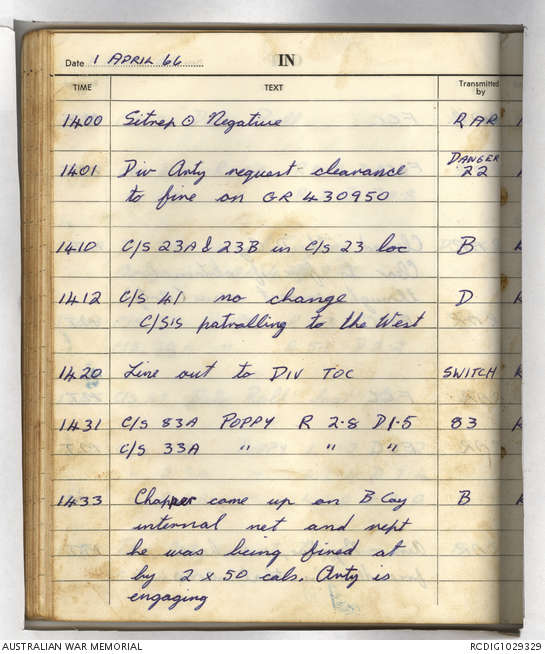 Date 1 APRIL 66 IN
TIME TEXT Transmitted by
1400 Sitrep ⊙ Negative RAR
1401 Div Arty request clearance DANGER 22
to fire on GR 430950
1410 C/S 23A & 23B in C/S 23 loc B
1412 C/S 41 no change D
C/S's patrolling to the West
1420 Line out to DIV TOC SWITCH
1431 C/S 83A POPPY R 2.8 D1.5 83
C/S 33A " " "
1433 Chopper came up on B Coy B
internal net and rept
he was being fired at
by 2 x 50 cals. Arty is
engaging
AUSTRALIAN WAR MEMORIAL RCDIG1029329